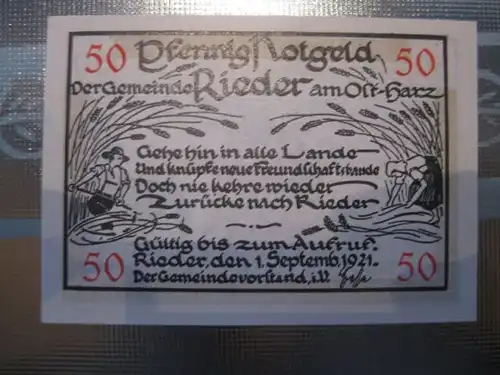 50 Pfennig Notgeld 50
Der Gemeinde Rieder am Ost-Harz
Gehe hin in alle Lande
Und knüpfe neue Freundschaftsbande
Doch nie kehre wieder
Zurücke nach Rieder
Gültig bis zum Aufruf.
Rieder, den 1. Septemb. 1921.
50 Der Gemeindevorstand, i.V. 50